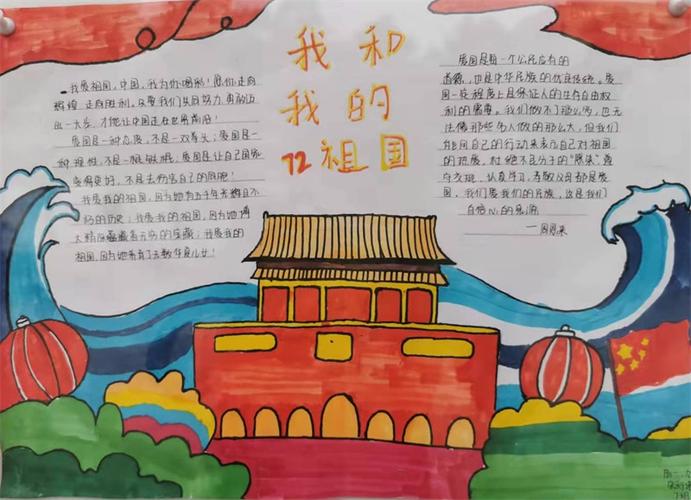 我和
我的
72祖国
我爱祖国,中国,我为你喝彩!愿你走向
辉煌,走向胜利。只要我们生日努力,勇敢迈出
一大步,才能让中国走在世界前沿!
爱国是一种态度,不是一双拳头;爱国是一
种理性,不是一腔敏眼;爱国是让自己国家
变得更好,不是去伤害自己的同胞!
我爱我的祖国,因为她有五千年
的历史;我爱我的祖国,因为她博
大精深蕴藏着无穷的宝藏;我爱我的
祖国,因为她养育了亿数华夏儿女!
爱国是每一个公民应有的
道德,也是中华民族的优良传统。爱
国一定程度上是保证人的生存自由权
利的需要。我们做不了
法像那些伟人做的那么大,但我们
能用自己的行动来表示对祖国
的
守交规,认真学习,孝敬父母都是爱
国,我们爱我们的民族,这是我们
自信心的泉源
—周恩来